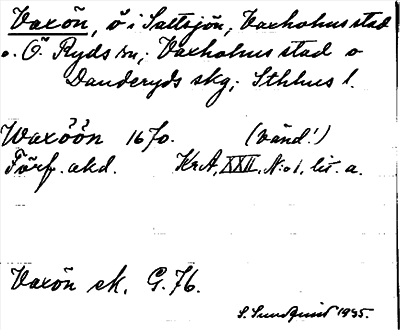 Vaxön, ö i Saltsjön, Vaxholms stad
o. Ö. Ryds sn; Vaxholms stad o
Danderyds skg; Sthlms l.
Waxöön 1670. (vänd!)
Förf. akd. KrA, XXII, No 1, lit. a.
Vaxön ek. G.76.
S. Sundquist 1935.